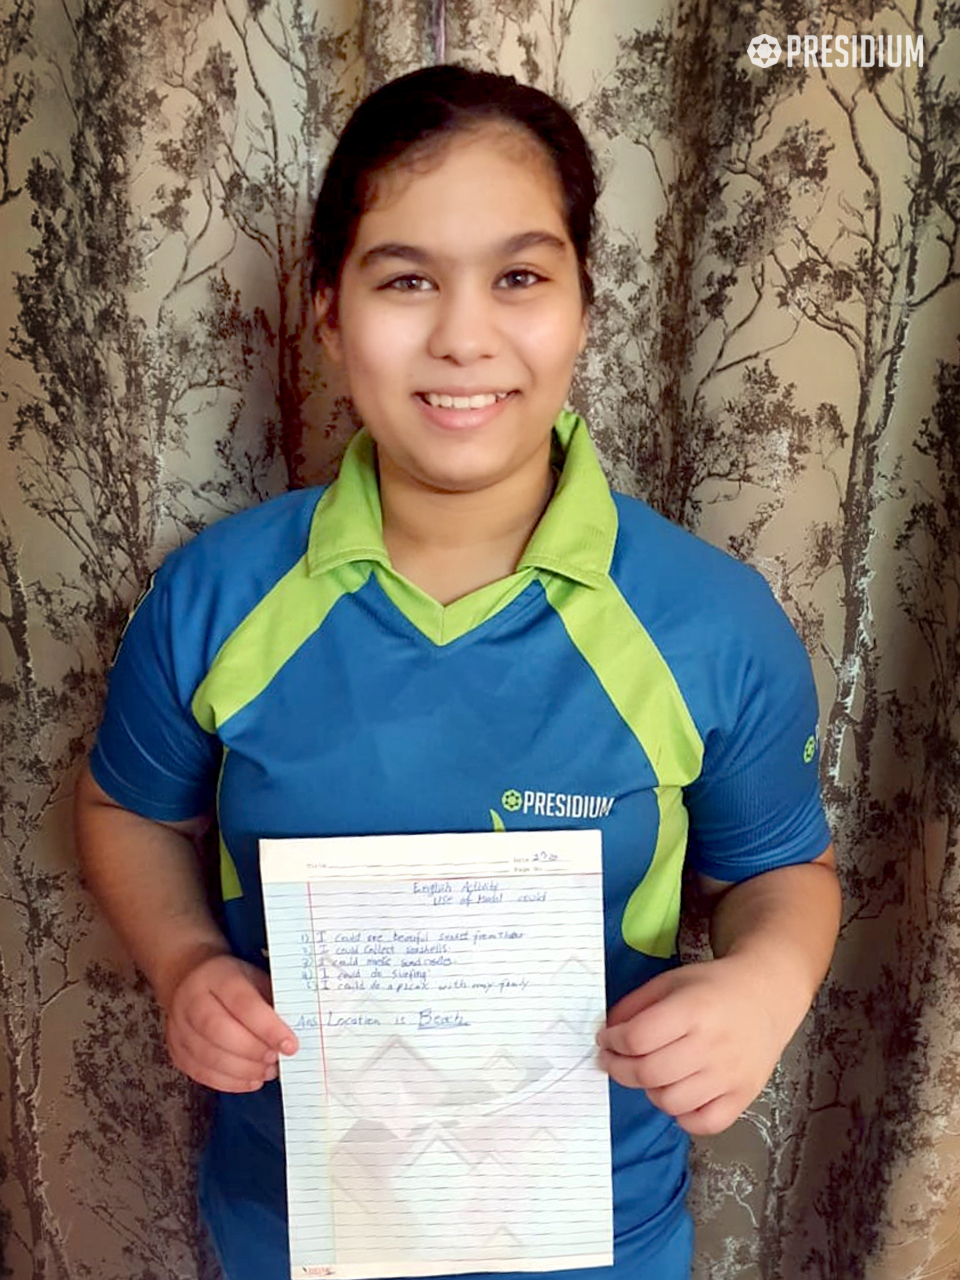 PRESIDIUM
PRESIDIUM
Date
Page No.
English Activity
Use of Modal could
1) I could see beautiful sunset from there
2) I could collect seashells
3) I could make sand castles
4) I could do surfing
5) I could do a picnic with my family
Ans Location is Beach